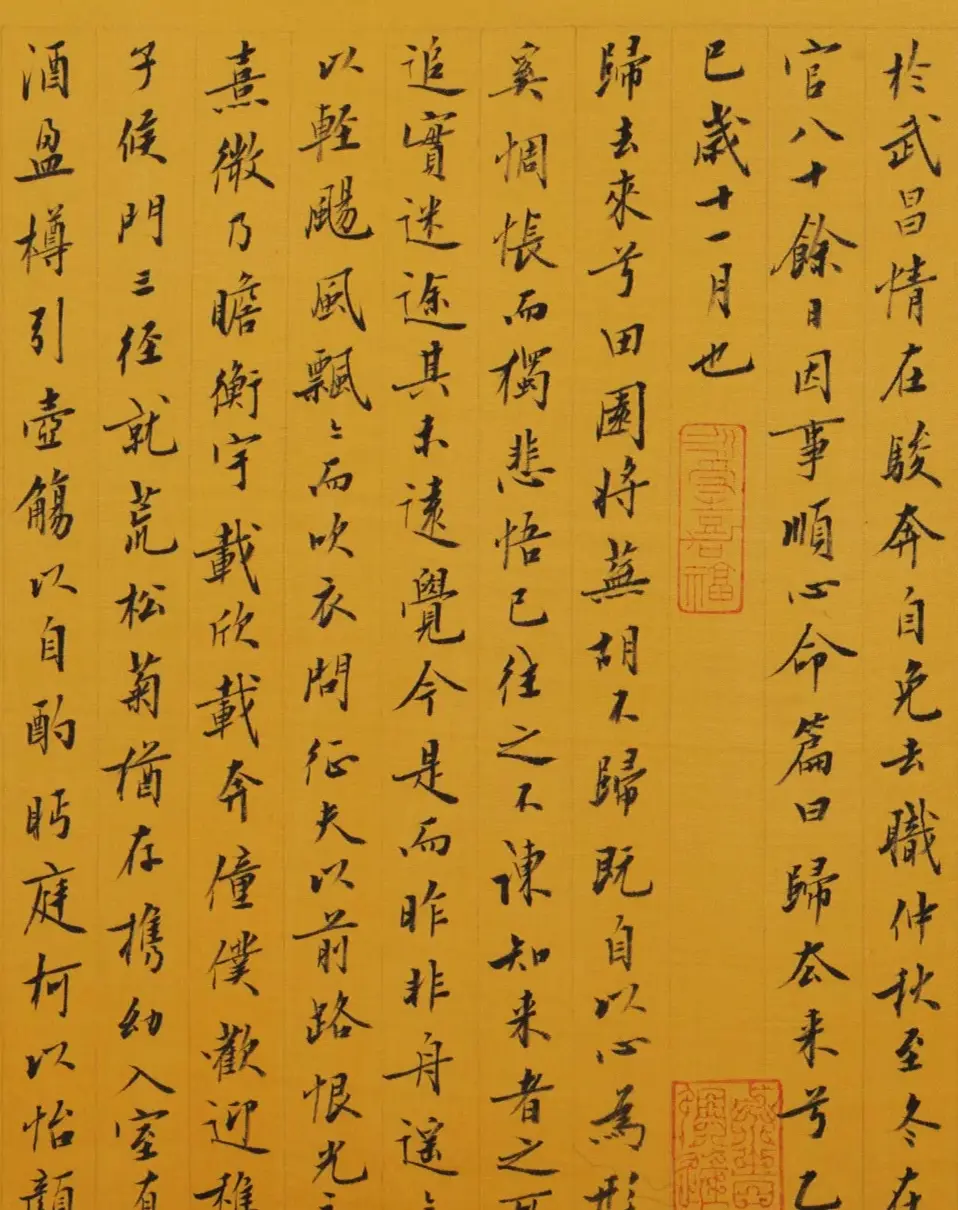 於武昌情在駿奔自免去職仲秋至冬在
官八十餘日因事順心命篇曰歸去来兮乙
巳歲十一月也
歸去來兮田園將蕪胡不歸既自以心為形
奚惆悵而獨悲悟已往之不諫知来者之可
追實迷途其未遠覺今是而昨非舟遥〻
以輕颺風飄〻而吹衣問征夫以前路恨光之
熹微乃瞻衡宇載欣載奔僮僕歡迎稚
子候門三徑就荒松菊猶存攜幼入室有
酒盈樽引壺觴以自酌眄庭柯以怡顏